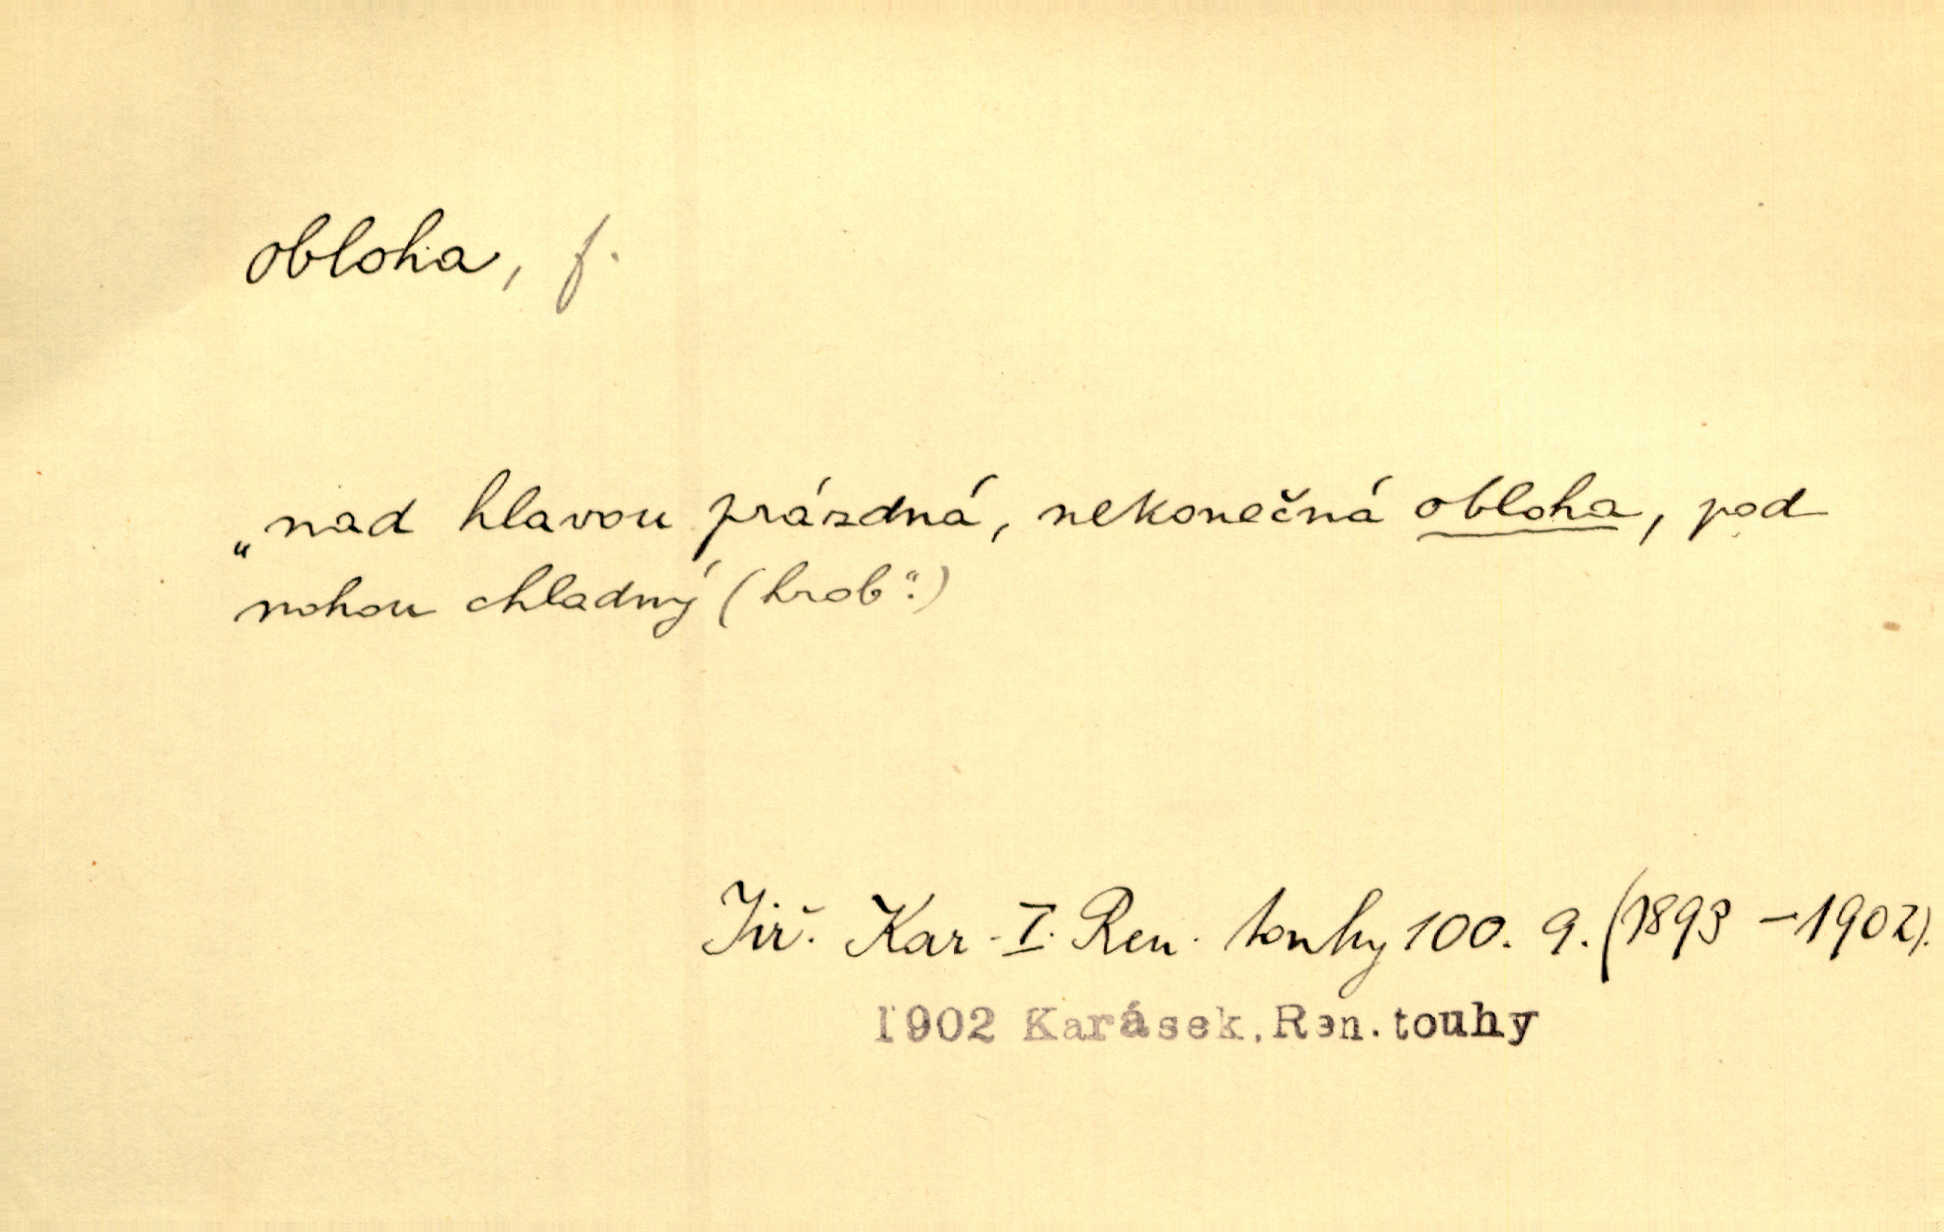 obloha, f.
„nad hlavou prázdná, nekonečná obloha, pod
nohou chladný (hrob“.)
Jiř. Kar. I. Ren. touhy 100. 9. (1893 – 1902).
1902 Karásek, Ren. touhy